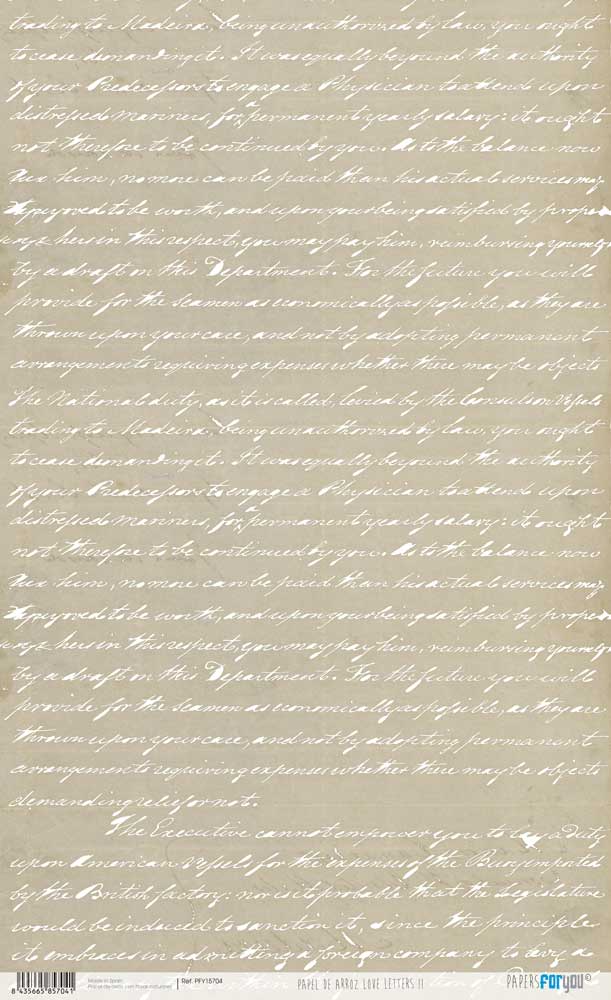 trading to Madeira, being unauthorized by law, you ought
to cease demanding it. It was equally beyond the authority
of your Predecessors to engage a Physician to attend upon
distressed mariners, for, permanent yearly salary: it ought
not, therefore to be continued by you. As to the balance now
due him, no more can be paid than his actual services may
be proved to be worth, and upon your being satisfied by proper
in this respect, you may pay him, reimbursing yourself
by a draft on this Department. For the future you will
provide for the seamen as economically as possible, as they are
thrown upon your care, and not by adopting permanent
arrangements requiring expenses whether there may be objects
The National duty, as it is called, levied by the Consul on Vessels
trading to Madeira, being unauthorized by law, you ought
to cease demanding it. It was equally beyond the authority
of your Predecessors to engage a Physician to attend upon
distressed mariners, for, permanent yearly salary: it ought
not, therefore to be continued by you. As to the balance now
due him, no more can be paid than his actual services may
be proved to be worth, and upon your being satisfied by proper
in this respect, you may pay him, reimbursing yourself
by a draft on this Department. For the future you will
provide for the seamen as economically as possible, as they are
thrown upon your care, and not by adopting permanent
arrangements requiring expenses whether there may be objects
demanding relief or not.
The Executive cannot empower you to lay a duty
upon American Vessels for the expenses of the Buoy imported
by the British factory: nor is it probable that the Legislature
would be induced to sanction it, since the principle
it embraces in admitting a foreign company to levy a
8 435665 857041 Made in Spain Ref. PFY15704 PAPEL DE ARROZ LOVE LETTERS II PAPERSFORYOU©